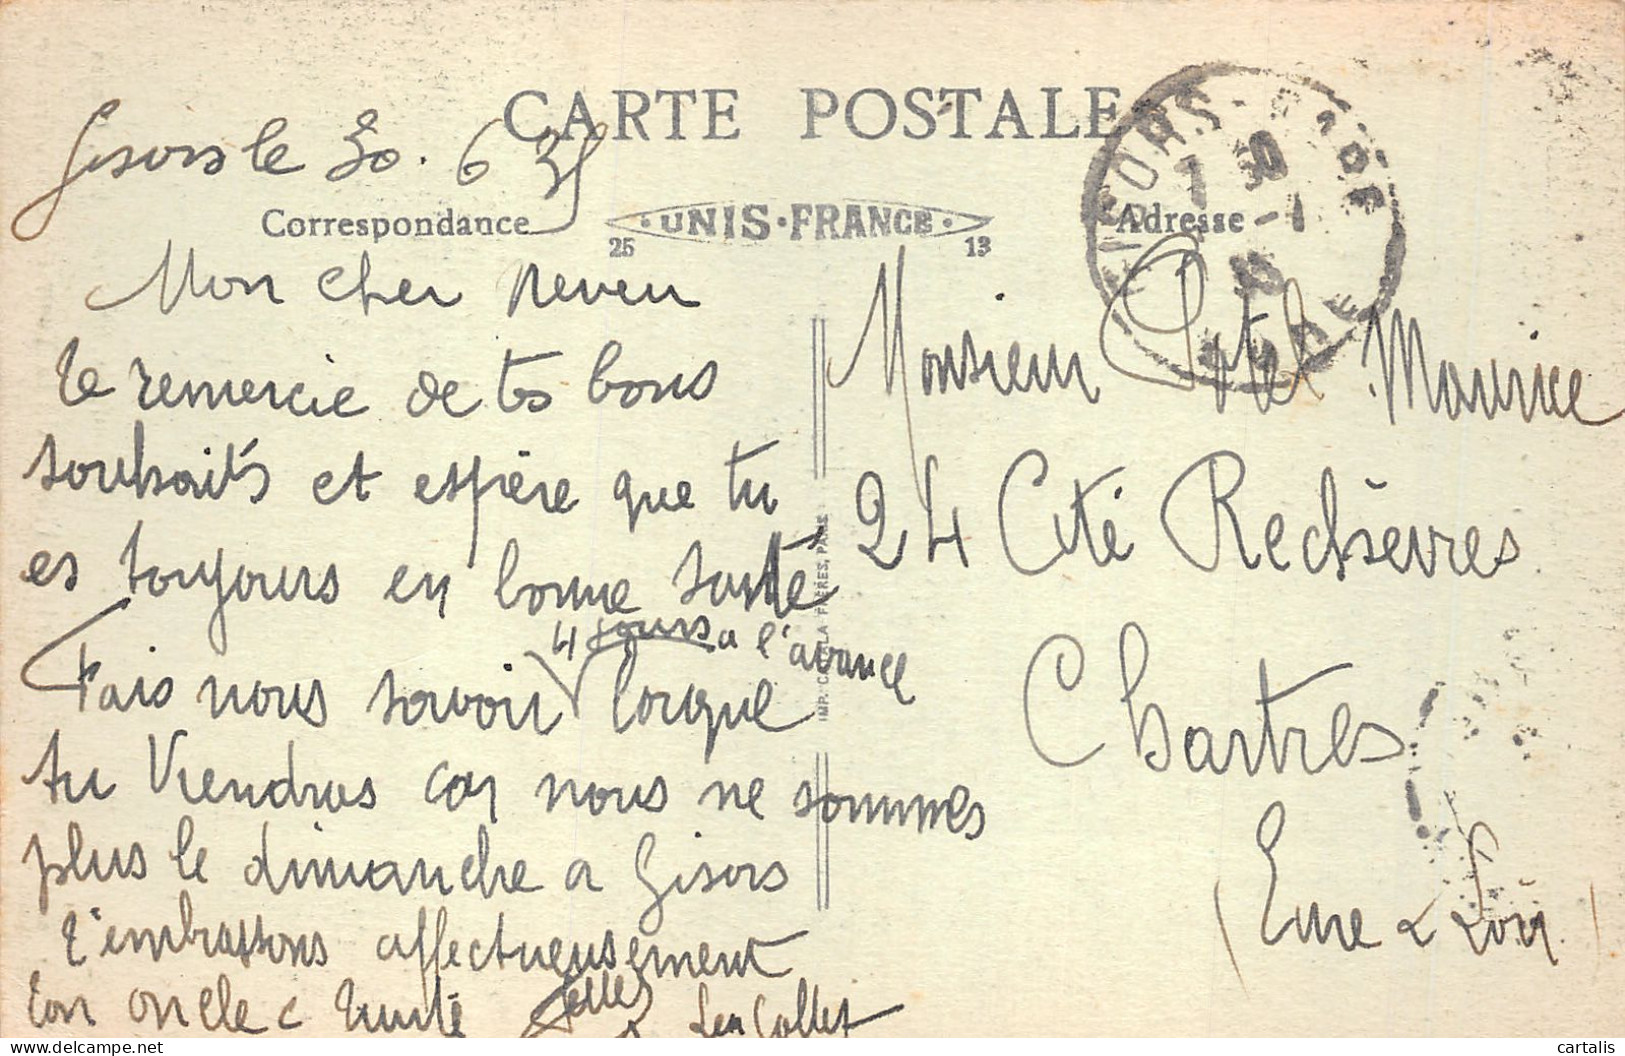 CARTE POSTALE
Gisors le 30. 6 35
Correspondance
·UNIS·FRANCE·
25 13
Adresse
GISORS-GARE
7 30
-1
35
EURE
Mon cher neveu
te remercie de tes bons
souhaits et espère que tu
es toujours en bonne santé
4 jours a l'avance
Fais nous savoir lorque
tu Viendras car nous ne sommes
plus le dimanche a Gisors
t'embrassons affectueusement
ton oncle
Monsieur Potel Maurice
24 Cité Rechèvres
Chartres
(Eure & Loir)
cartalis